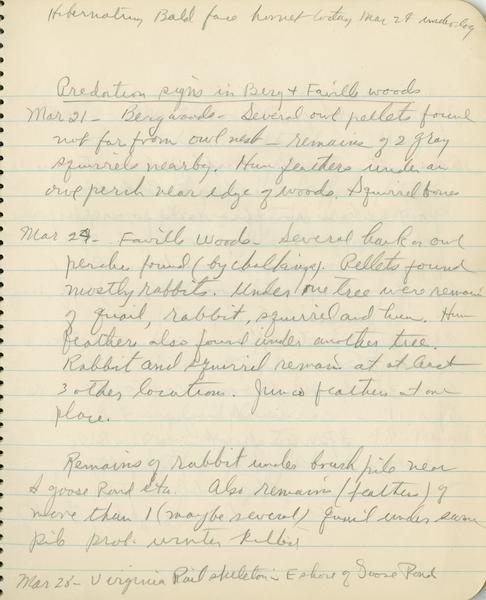 Hibernating Bald face hornet today Mar 24 under log
Predation signs in Berg & Faville woods
Mar 21 - Berg woods - Several owl pellets found
not far from owl nest - remains of 2 gray
squirrels nearby. Hun feathers under an
owl perch near edge of woods. & Squirrel bones
Mar 24 - Faville Woods - Several hawk or owl
perches found (by chalkings). Pellets found
mostly rabbits. Under one tree were remains
of quail, rabbit, squirrel and hun. Hun
feathers also found under another tree.
Rabbit and squirrel remains at at least
3 other locations. Junco feathers at one
place.
Remains of rabbit under brush pile near
goose Pond Also remains (feathers) of
more than 1 (maybe several) quail under same
pile prob. winter killed
Mar 28 - Virginia Rail skeleton E shore of Goose Pond